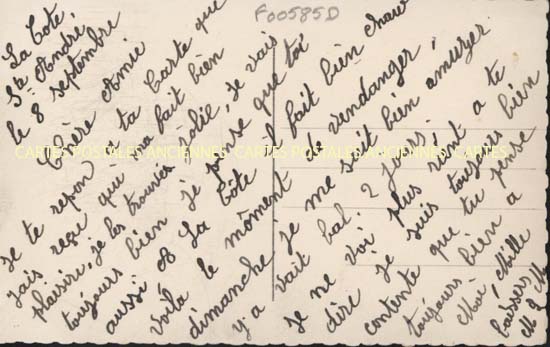 F00585D
La Côte,
St André,
le 8 septembre
Chère Amie
Je te repon ta Carte que
jais reçu que m'a fait bien
plaisire, je les trouvée jolie, je vais
toujours bien je pense que toi
aussi a La Côte il fait bien chaud
Voilà le moment de vendanger,
dimanche je me suit bien amuzer
y a vait bal 2 jours.
Je me voi plus rient a te
dire je suis toujours bien
contente que tu pense
toujours bien a
Moi, Mille
baisers
CARTES POSTALES ANCIENNES CARTES POSTALES ANCIENNES CARTES